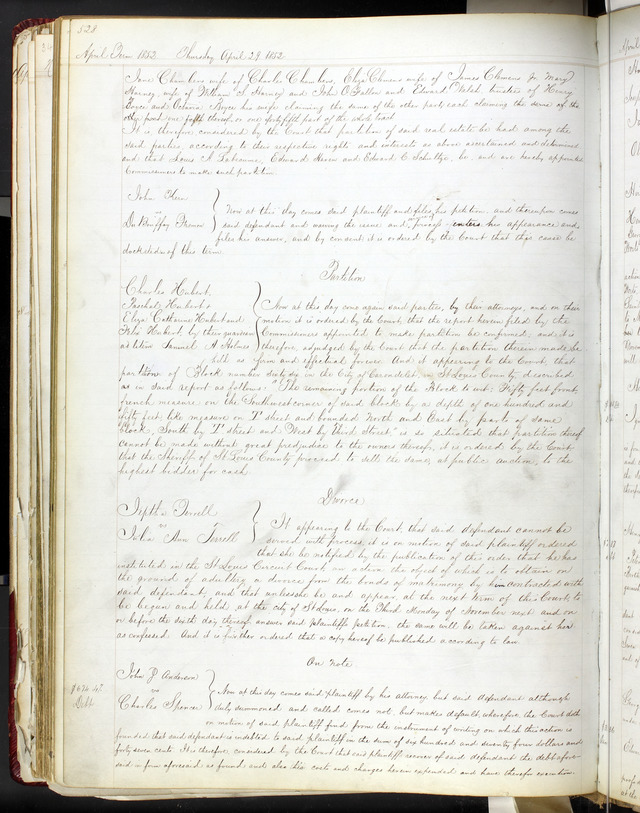 528
April Term 1852 Thursday April 29. 1852
Jane Chambers wife of Charles Chambers, Eliza Clemens wife of James Clemens Jr Mary
Harney, wife of William S Harney and John O'Fallon and Edward Walsh trustees of Henry
and Octavia Boyce his wife claiming the same of the other parts each claiming the same of the
other part one fifth through or one forty fifth part of the whole tract
It is therefore considered by the Court that partition of said real estate be had among the
said parties, according to their respective rights and interests as above ascertained and determined
and that Louis A Labeaume, Edward Haren and Edward C Schultze, be and are hereby appointed
Commissioners to make such partition.
John
vs
Now at this day comes said plaintiff and files his petition, and thereupon comes
said defendant and waiving the issue and process enters his appearance and
files his answer, and by consent it is ordered by the Court that this cause be
docketed of this term
Partition
Charles Hubert,
Paschal Hubert
Eliza Catharine Hubert and
Felix Hubert, by their guardian
ad litem Samuel A Holmes
Now at this day come again said parties, by their attorneys, and on their
motion it is ordered by the Court, that the report herein filed by the
Commissioners appointed to make partition be confirmed, and it is
therefore adjudged by the Court that the partition therein made be
held as firm and effectual forever. And it appearing to the Court, that
partition of Block number sixty six in the City of Carondelet in St Louis County, described
as in said report as follows: "The remaining portion of the Block to wit: Fifty feet front,
french measure on the Southwest corner of said block by a depth of one hundred and
fifty feet like measure on "T" street and bounded North and East by parts of same
Block, South by "T" street and West by Third Street" is so situated that partition thereof
cannot be made without great prejudice to the owners thereof, it is ordered by the Court
that the Sheriff of St Louis County proceed to sell the same, at public auction, to the
highest bidder for cash
Divorce
Jeptha Terrell
vs
Julia Ann Terrell
It appearing to the Court, that said defendant cannot be
served with process, it is on motion of said plaintiff ordered
that she be notified by the publication of this order that he has
instituted in the St Louis Circuit Court, an action the object of which is to obtain on
the ground of adultery a divorce from the bonds of matrimony by him contracted with
said defendant, and that unless she be and appear, at the next term of this Court, to
be begun and held, at the city of St Louis, on the Third Monday of November next and on
or before the sixth day thereof answer said plaintiff's petition, the same will be taken against her
as confessed. And it is further ordered that a copy hereof be published according to law.
On note
$674.47
Debt
John P Anderson
vs
Charles Spencer
Now at this day comes said plaintiff by his attorney but said defendant although
duly summoned and called comes not, but makes default, wherefore the Court doth
on motion of said plaintiff find from the instrument of writing on which this action is
founded that said defendant is indebted to said plaintiff in the sum of six hundred and seventy four dollars and
forty seven cents. It is therefore considered by the Court that said plaintiff recover of said defendant the debt afore-
said in form aforesaid as found and also his costs and charges herein expended and have thereof execution.